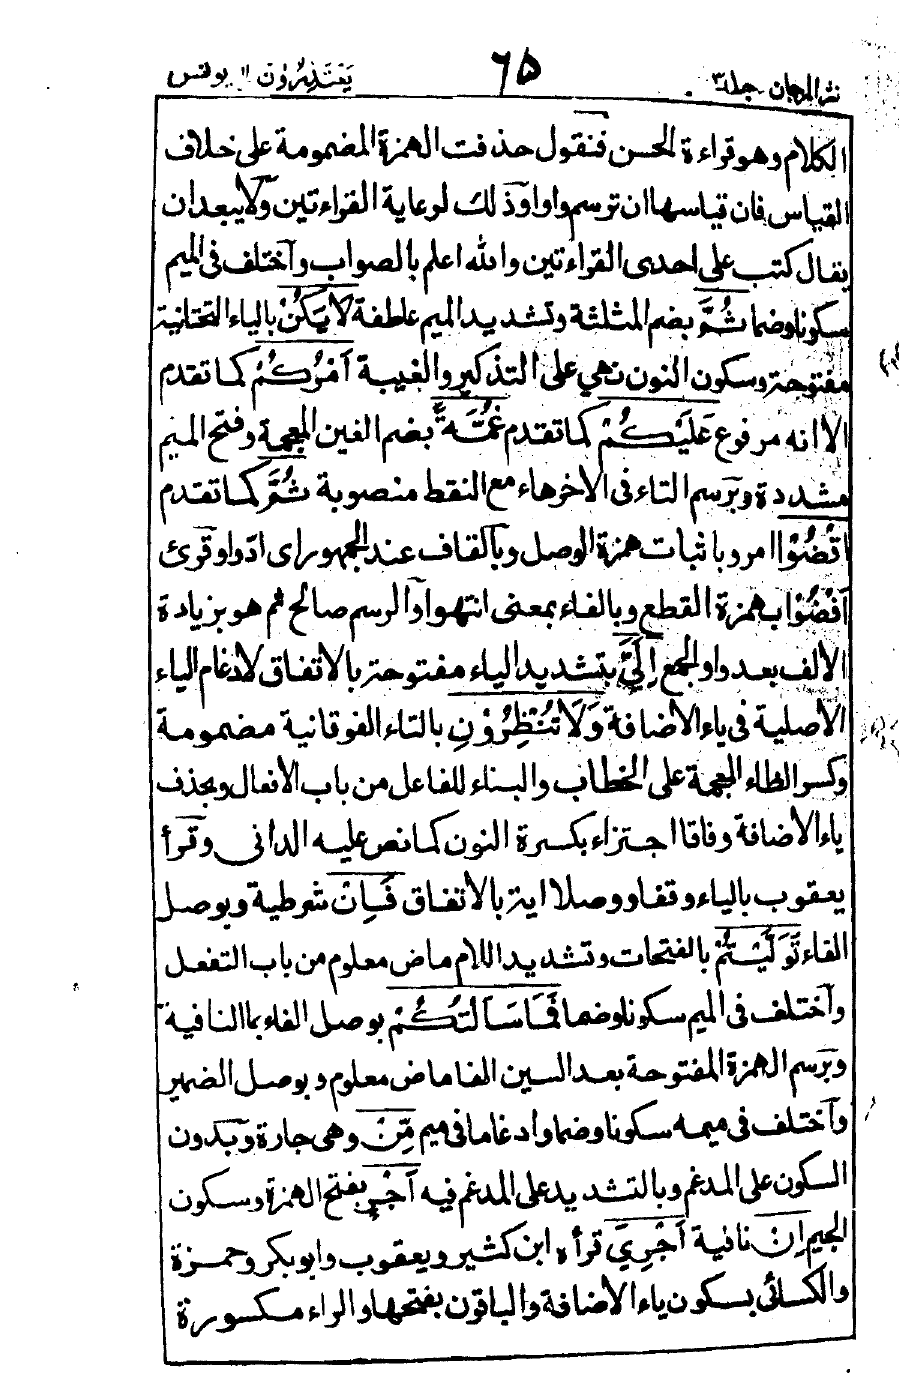 نثر المرجان جلد ۳
۶۵
يَعْتَذِرُوْنَ ۱۱ يونس
الكلام وهو قراءة الحسن فنقول حذفت الهمزة المضمومة على خلاف
القياس فان قياسها ان ترسم واوا وَذلك لرعاية القراءتين وَلا يبعد ان
يقال كتب على احدى القراءتين والله اعلم بالصواب وَاختلف فى الميم
سكونا وضما ثُمَّ بضم المثلثة وتشديد الميم عاطفة لَا يَكُنْ بالياء التحتانية
مفتوحة وسكون النون نهي على التذكير والغيبة اَمْرُكُمْ كما تقدم
الا انه مرفوع عَلَيْكُمْ كما تقدم غُمَّةً بضم الغين المعجمة وفتح الميم
مشددة وبرسم التاء فى الاخر هاء مع النقط منصوبة ثُمَّ كما تقدم
اقْضُوْا امر وباثبات همزة الوصل وبالقاف عند الجمهور اى ادوا وقرئ
اَفْضُوْا بهمزة القطع وبالفاء بمعنى انتهوا وَالرسم صالح ثم هو بزيادة
الالف بعد واو الجمع اِلَيَّ بتشديد الياء مفتوحة بالاتفاق لادغام الياء
الاصلية فى ياء الاضافة وَلَا تُنْظِرُوْنِ بالتاء الفوقانية مضمومة
وكسر الظاء المعجمة على الخطاب والبناء للفاعل من باب الافعال وبحذف
ياء الاضافة وفاقا اجتزاء بكسرة النون كما نص عليه الدانى وقرأ
يعقوب بالياء وقفا ووصلا اية بالاتفاق فَاِنْ شرطية وبوصل
الفاء تَوَلَّيْتُمْ بالفتحات وتشديد اللام ماض معلوم من باب التفعل
وَاختلف فى الميم سكونا وضما فَمَا سَاَلْتُكُمْ بوصل الفاء بما النافية
وبرسم الهمزة المفتوحة بعد السين الفا ماض معلوم وبوصل الضمير
وَاختلف فى ميمه سكونا وضما وادغاما فى ميم مِّنْ وهى جارة وَبدون
السكون على المدغم وبالتشديد على المدغم فيه اَجْرٍ بفتح الهمزة وسكون
الجيم اِنْ نافية اَجْرِيَ قرأه ابن كثير ويعقوب وابو بكر وحمزة
والكسائى بسكون ياء الاضافة والباقون بفتحها والراء مكسورة